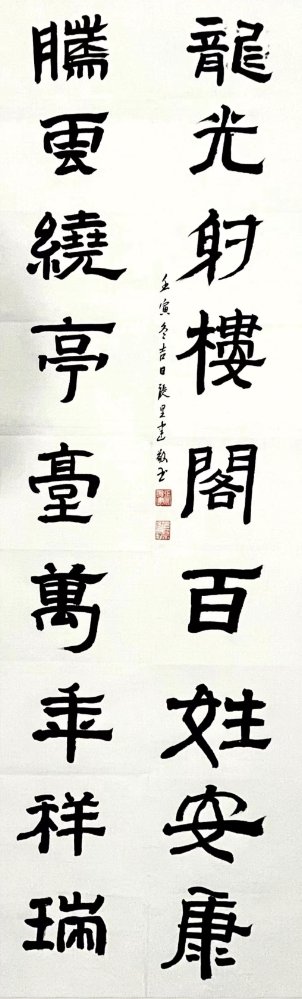 龍光射樓閣百姓安康
騰雲繞亭臺萬年祥瑞
壬寅冬吉日張呈達敬書